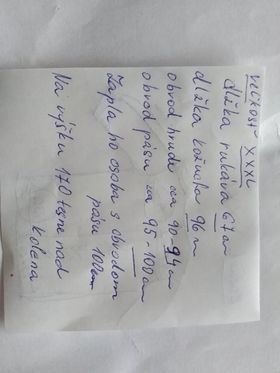 veľkosť XXXL
dĺžka rukáva 67cm
dĺžka kožucha 96cm
obvod hrude cca 90-94cm
obvod pásu cca 95-100cm
Zapla ho osoba s obvodom
pásu 100cm
Na výšku 170 tesne nad
kolená